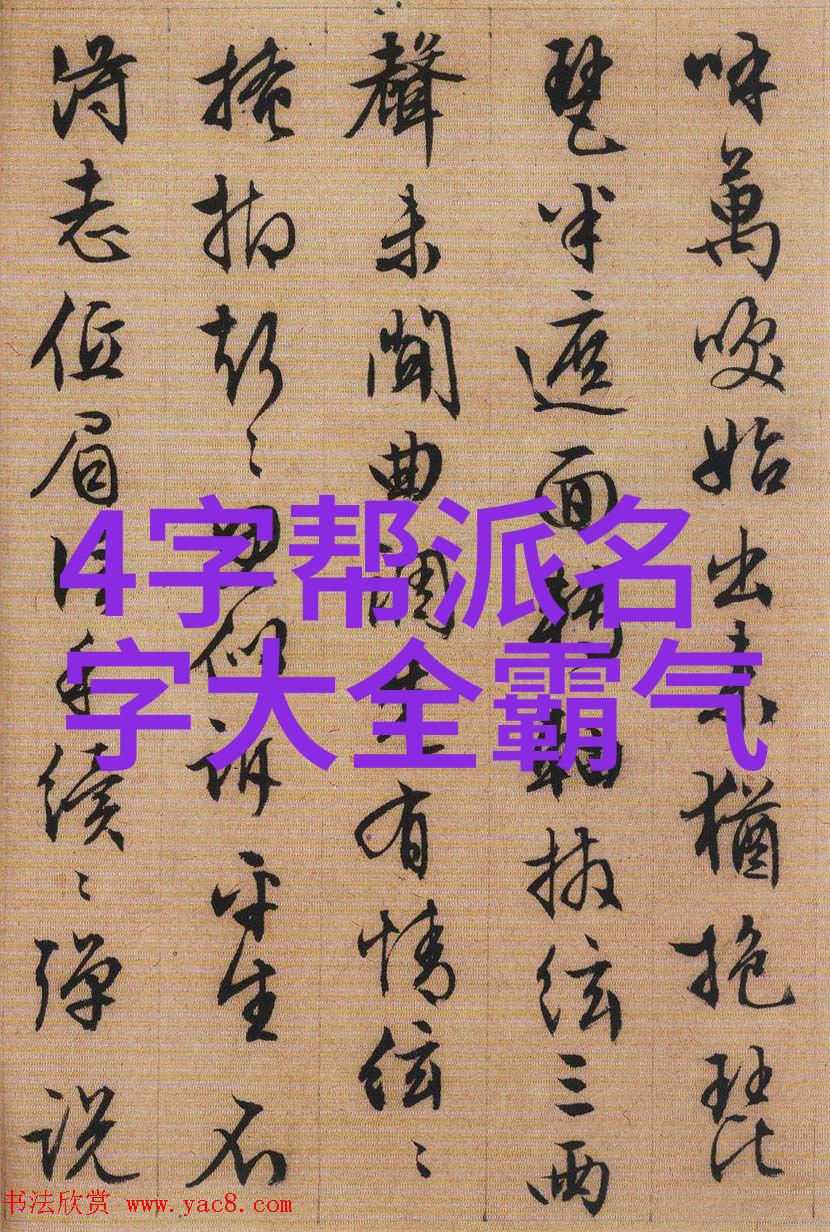 呼萬喚始出来猶抱琵
琶半遮面轉軸撥絃三兩
聲未聞曲調先有情絃〻
掩抑聲〻思似訴平生不
得志低眉信手續〻彈說
4字帮派名
字大全霸气
书法欣赏 www.yac8.com